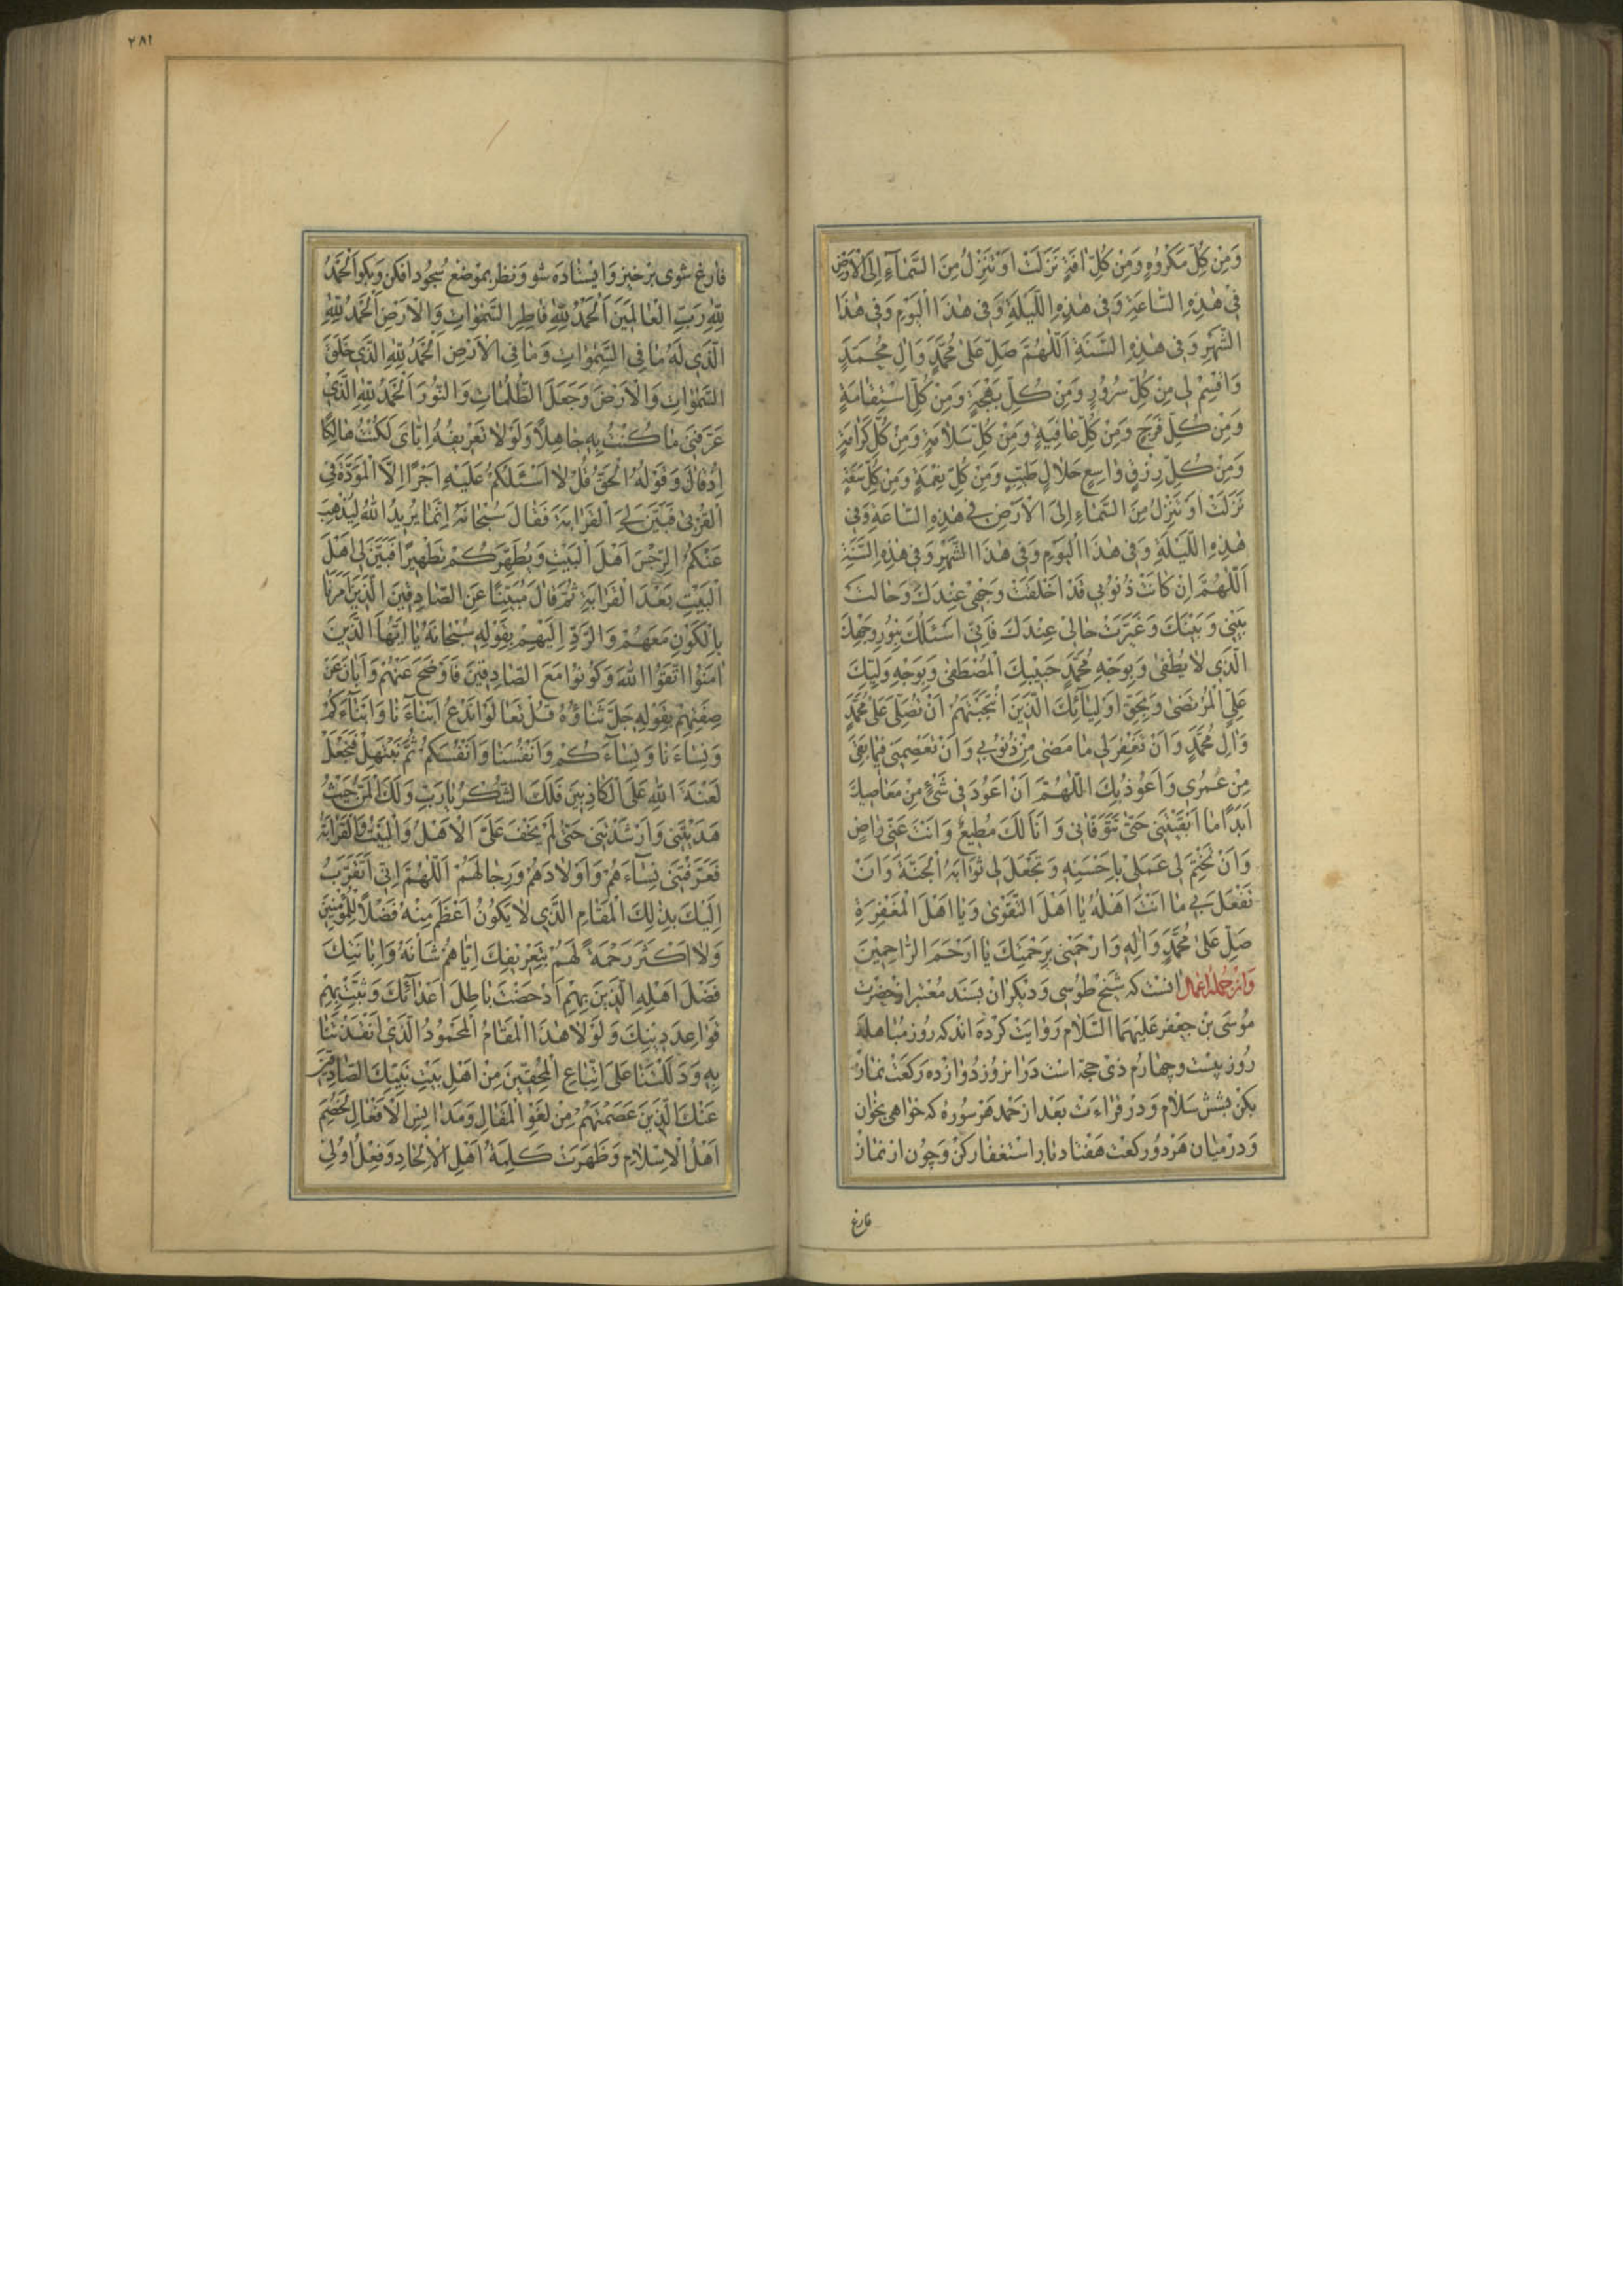 وَمِنْ كُلِّ مَكْرُوهٍ وَمِنْ كُلِّ افَةٍ نَزَلَتْ اَوْ تَنْزِلُ مِنَ السَّمٰآءِ اِلَى الْاَرْضِ
فِي هٰذِهِ السّٰاعَةِ وَفِي هٰذِهِ اللَّيْلَةِ وَفِي هٰذَا الْيَوْمِ وَفِي هٰذَا
الشَّهْرِ وَفِي هٰذِهِ السَّنَةِ اَللّٰهُمَّ صَلِّ عَلىٰ مُحَمَّدٍ وَالِ مُحَمَّدٍ
وَاقْسِمْ لِي مِنْ كُلِّ سُرُورٍ وَمِنْ كُلِّ بَهْجَةٍ وَمِنْ كُلِّ اسْتِقٰامَةٍ
وَمِنْ كُلِّ فَرَجٍ وَمِنْ كُلِّ عٰافِيَةٍ وَمِنْ كُلِّ سَلٰامَةٍ وَمِنْ كُلِّ كَرٰامَةٍ
وَمِنْ كُلِّ رِزْقٍ وٰاسِعٍ حَلٰالٍ طَيِّبٍ وَمِنْ كُلِّ نِعْمَةٍ وَمِنْ كُلِّ سَعَةٍ
نَزَلَتْ اَوْ تَنْزِلُ مِنَ السَّمٰاءِ اِلَى الْاَرْضِ فِي هٰذِهِ السّٰاعَةِ وَفِي
هٰذِهِ اللَّيْلَةِ وَفِي هٰذَا الْيَوْمِ وَفِي هٰذَا الشَّهْرِ وَفِي هٰذِهِ السَّنَةِ
اَللّٰهُمَّ اِنْ كٰانَتْ ذُنُوبِي قَدْ اَخْلَقَتْ وَجْهِي عِنْدَكَ وَحٰالَتْ
بَيْنِي وَبَيْنَكَ وَغَيَّرَتْ حٰالِي عِنْدَكَ فَاِنِّي اَسْئَلُكَ بِنُورِ وَجْهِكَ
الَّذِي لٰا يُطْفىٰ وَبِوَجْهِ مُحَمَّدٍ حَبِيبِكَ الْمُصْطَفىٰ وَبِوَجْهِ وَلِيِّكَ
عَلِيٍّ الْمُرْتَضىٰ وَبِحَقِّ اَوْلِيٰآئِكَ الَّذِينَ انْتَجَبْتَهُمْ اَنْ تُصَلِّيَ عَلىٰ مُحَمَّدٍ
وَالِ مُحَمَّدٍ وَاَنْ تَغْفِرَ لِي مٰا مَضىٰ مِنْ ذُنُوبِي وَاَنْ تَعْصِمَنِي فِيمٰا بَقِيَ
مِنْ عُمُرِي وَاَعُوذُ بِكَ اللّٰهُمَّ اَنْ اَعُودَ فِي شَيْءٍ مِنْ مَعٰاصِيكَ
اَبَدًا مٰا اَبْقَيْتَنِي حَتّىٰ تَتَوَفّٰانِي وَاَنَا لَكَ مُطِيعٌ وَاَنْتَ عَنِّي رٰاضٍ
وَاَنْ تَخْتِمَ لِي عَمَلِي بِاَحْسَنِهِ وَتَجْعَلَ لِي ثَوٰابَهُ الْجَنَّةَ وَاَنْ
تَفْعَلَ بِي مٰا اَنْتَ اَهْلُهُ يٰا اَهْلَ التَّقْوىٰ وَيٰا اَهْلَ الْمَغْفِرَةِ
صَلِّ عَلىٰ مُحَمَّدٍ وَالِهِ وَارْحَمْنِي بِرَحْمَتِكَ يٰا اَرْحَمَ الرّٰاحِمِينَ
وَاز جمله اعمال انست که شیخ طوسی و دیکران بسند معتبر از حضرت
موسی بن جعفر علیهما السّلام روایت کرده اند که روز مباهله
روز بیست و چهارم ذی حجّه است در انروز دوازده رکعت نماز
بکن بشش سلام و در قراءت بعد از حمد هر سوره که خواهی بخوان
و در میان هر دو رکعت هفتاد بار استغفار کن و چون از نماز
فارغ
٢٨١
فارغ شوی برخیز و ایستاده شو و نظر بموضع سجود افکن و بکو اَلْحَمْدُ
لِلّٰهِ رَبِّ الْعٰالَمِينَ اَلْحَمْدُ لِلّٰهِ فٰاطِرِ السَّمٰوٰاتِ وَالْاَرْضِ اَلْحَمْدُ لِلّٰهِ
الَّذِي لَهُ مٰا فِي السَّمٰوٰاتِ وَمٰا فِي الْاَرْضِ اَلْحَمْدُ لِلّٰهِ الَّذِي خَلَقَ
السَّمٰوٰاتِ وَالْاَرْضَ وَجَعَلَ الظُّلُمٰاتِ وَالنُّورَ اَلْحَمْدُ لِلّٰهِ الَّذِي
عَرَّفَنِي مٰا كُنْتُ بِهِ جٰاهِلًا وَلَوْلٰا تَعْرِيفُهُ اِيّٰايَ لَكُنْتُ هٰالِكًا
اِذْ قٰالَ وَقَوْلُهُ الْحَقُّ قُلْ لٰا اَسْئَلُكُمْ عَلَيْهِ اَجْرًا اِلَّا الْمَوَدَّةَ فِي
الْقُرْبىٰ فَبَيَّنَ لِيَ الْقَرٰابَةَ فَقٰالَ سُبْحٰانَهُ اِنَّمٰا يُرِيدُ اللّٰهُ لِيُذْهِبَ
عَنْكُمُ الرِّجْسَ اَهْلَ الْبَيْتِ وَيُطَهِّرَكُمْ تَطْهِيرًا فَبَيَّنَ لِي اَهْلَ
الْبَيْتِ بَعْدَ الْقَرٰابَةِ ثُمَّ قٰالَ مُبَيِّنًا عَنِ الصّٰادِقِينَ الَّذِينَ اَمَرَنٰا
بِالْكَوْنِ مَعَهُمْ وَالرَّدِّ اِلَيْهِمْ بِقَوْلِهِ سُبْحٰانَهُ يٰا اَيُّهَا الَّذِينَ
اٰمَنُوا اتَّقُوا اللّٰهَ وَكُونُوا مَعَ الصّٰادِقِينَ فَاَوْضَحَ عَنْهُمْ وَاَبٰانَ عَنْ
صِفَتِهِمْ بِقَوْلِهِ جَلَّ ثَنٰاؤُهُ قُلْ تَعٰالَوْا نَدْعُ اَبْنٰاءَنٰا وَاَبْنٰاءَكُمْ
وَنِسٰاءَنٰا وَنِسٰاءَكُمْ وَاَنْفُسَنٰا وَاَنْفُسَكُمْ ثُمَّ نَبْتَهِلْ فَنَجْعَلْ
لَعْنَةَ اللّٰهِ عَلَى الْكٰاذِبِينَ فَلَكَ الشُّكْرُ يٰا رَبِّ وَلَكَ الْمَنُّ حَيْثُ
هَدَيْتَنِي وَاَرْشَدْتَنِي حَتّىٰ لَمْ يَخْفَ عَلَيَّ الْاَهْلُ وَالْبَيْتُ وَالْقَرٰابَةُ
فَعَرَّفْتَنِي نِسٰاءَهُمْ وَاَوْلٰادَهُمْ وَرِجٰالَهُمْ اَللّٰهُمَّ اِنِّي اَتَقَرَّبُ
اِلَيْكَ بِذٰلِكَ الْمَقٰامِ الَّذِي لٰا يَكُونُ اَعْظَمَ مِنْهُ فَضْلًا لِلْمُؤْمِنِينَ
وَلٰا اَكْثَرَ رَحْمَةً لَهُمْ بِتَعْرِيفِكَ اِيّٰاهُمْ شَأْنَهُ وَاِبٰانَتِكَ
فَضْلَ اَهْلِهِ الَّذِينَ بِهِمْ اَدْحَضْتَ بٰاطِلَ اَعْدٰآئِكَ وَثَبَّتَّ بِهِمْ
قَوٰاعِدَ دِينِكَ وَلَوْلٰا هٰذَا الْمَقٰامُ الْمَحْمُودُ الَّذِي اَنْقَذْتَنٰا
بِهِ وَدَلَلْتَنٰا عَلَى اتِّبٰاعِ الْمُحِقِّينَ مِنْ اَهْلِ بَيْتِ نَبِيِّكَ الصّٰادِقِينَ
عَنْكَ الَّذِينَ عَصَمْتَهُمْ مِنْ لَغْوِ الْمَقٰالِ وَمَدٰانِسِ الْاَفْعٰالِ لَخُصِمَ
اَهْلُ الْاِسْلٰامِ وَظَهَرَتْ كَلِمَةُ اَهْلِ الْاِلْحٰادِ وَفِعْلُ اُولِي